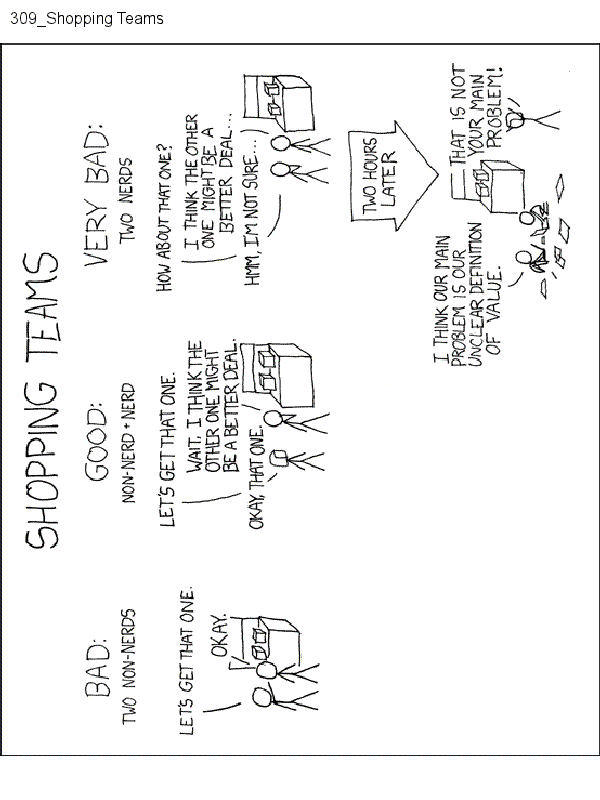 309_Shopping Teams
SHOPPING TEAMS
BAD:
TWO NON-NERDS
LET'S GET THAT ONE.
OKAY.
GOOD:
NON-NERD + NERD
LET'S GET THAT ONE.
WAIT. I THINK THE
OTHER ONE MIGHT
BE A BETTER DEAL.
OKAY, THAT ONE.
VERY BAD:
TWO NERDS
HOW ABOUT THAT ONE?
I THINK THE OTHER
ONE MIGHT BE A
BETTER DEAL...
HMM, I'M NOT SURE...
TWO HOURS
LATER
I THINK OUR MAIN
PROBLEM IS OUR
UNCLEAR DEFINITION
OF VALUE.
THAT IS NOT
YOUR MAIN
PROBLEM!